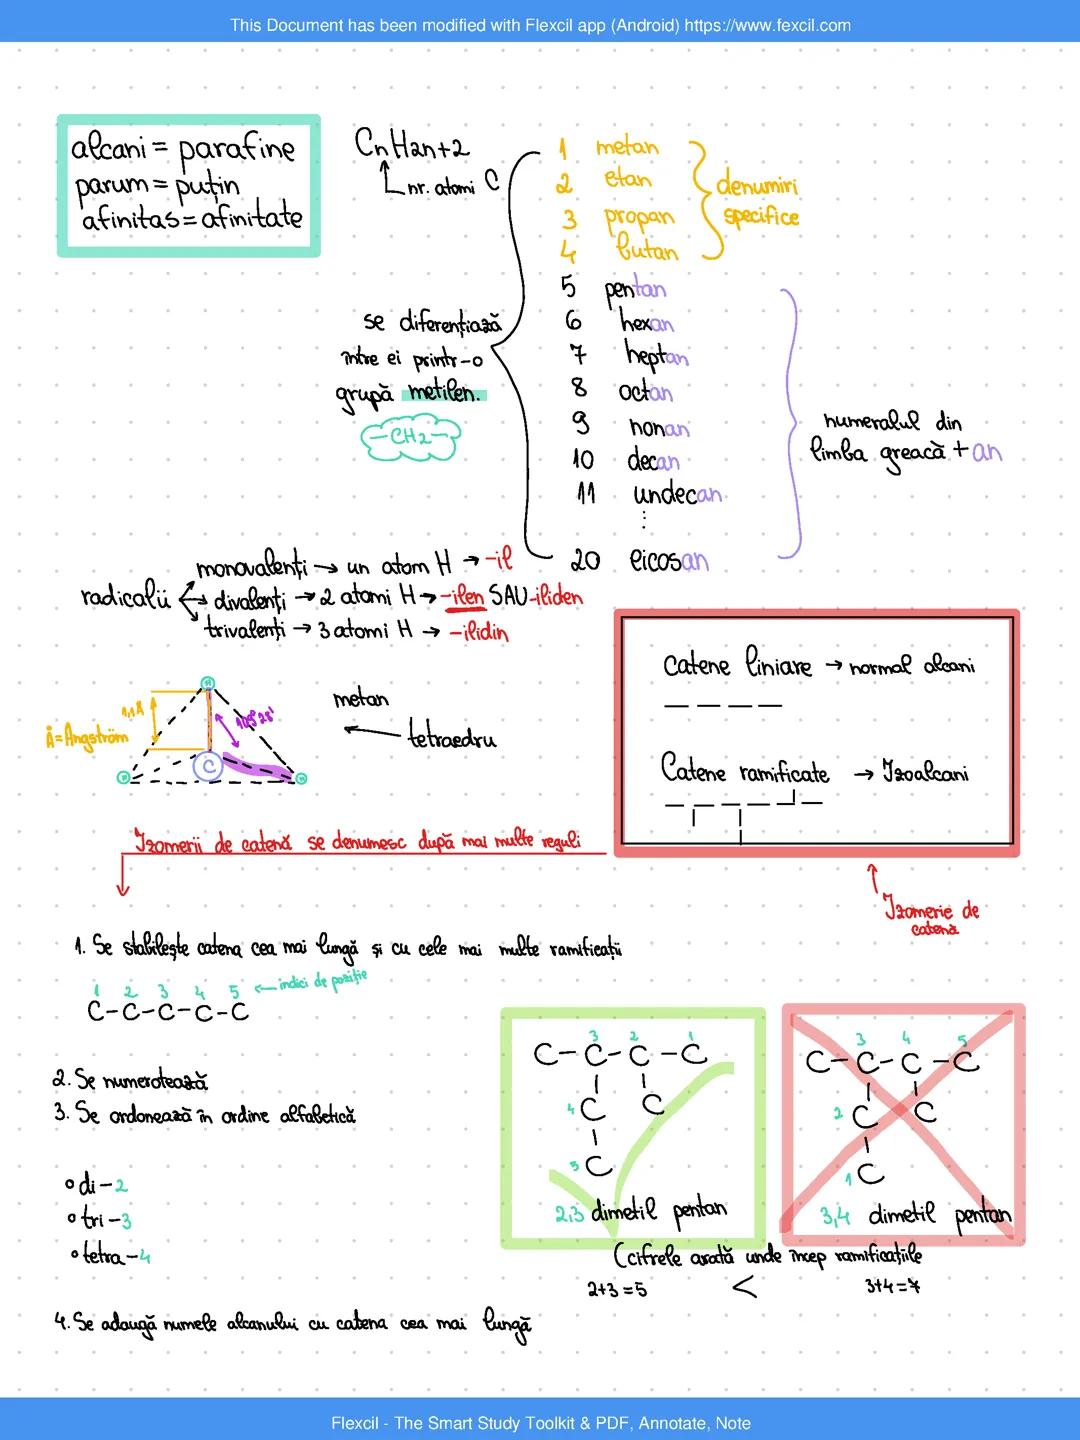 This Document has been modified with Flexcil app (Android) https://www.fexcil.com
alcani = parafine
parum = puțin
afinitas = afinitate
CnH2n+2
nr. atomi C
1 metan
2 etan
3 propan
4 butan
denumiri
specifice
5 pentan
6 hexan
7 heptan
8 octan
9 nonan
10 decan
11 undecan
⋮
20 eicosan
numeralul din
limba greacă + an
se diferențiază
între ei printr-o
grupă metilen.
-CH2-
radicalii
monovalenți → un atom H → -il
divalenți → 2 atomi H → -ilen SAU -iliden
trivalenți → 3 atomi H → -ilidin
Catene liniare → normal alcani
Catene ramificate → Izoalcani
Izomerie de
catenă
H
1,1Å
109°28'
Å=Angström
C
H
H
metan
← tetraedru
Izomerii de catenă se denumesc după mai multe reguli
1. Se stabilește catena cea mai lungă și cu cele mai multe ramificații
1 2 3 4 5 ← indici de poziție
C-C-C-C-C
2. Se numerotează
3. Se ordonează în ordine alfabetică
di - 2
tri - 3
tetra - 4
3 2 1
C-C-C-C
4 C C
5 C
2,3 dimetil pentan
3 4 5
C-C-C-C
2 C C
1 C
3,4 dimetil pentan
(cifrele arată unde încep ramificațiile
2+3=5 < 3+4=7
4. Se adaugă numele alcanului cu catena cea mai lungă
Flexcil - The Smart Study Toolkit & PDF, Annotate, Note